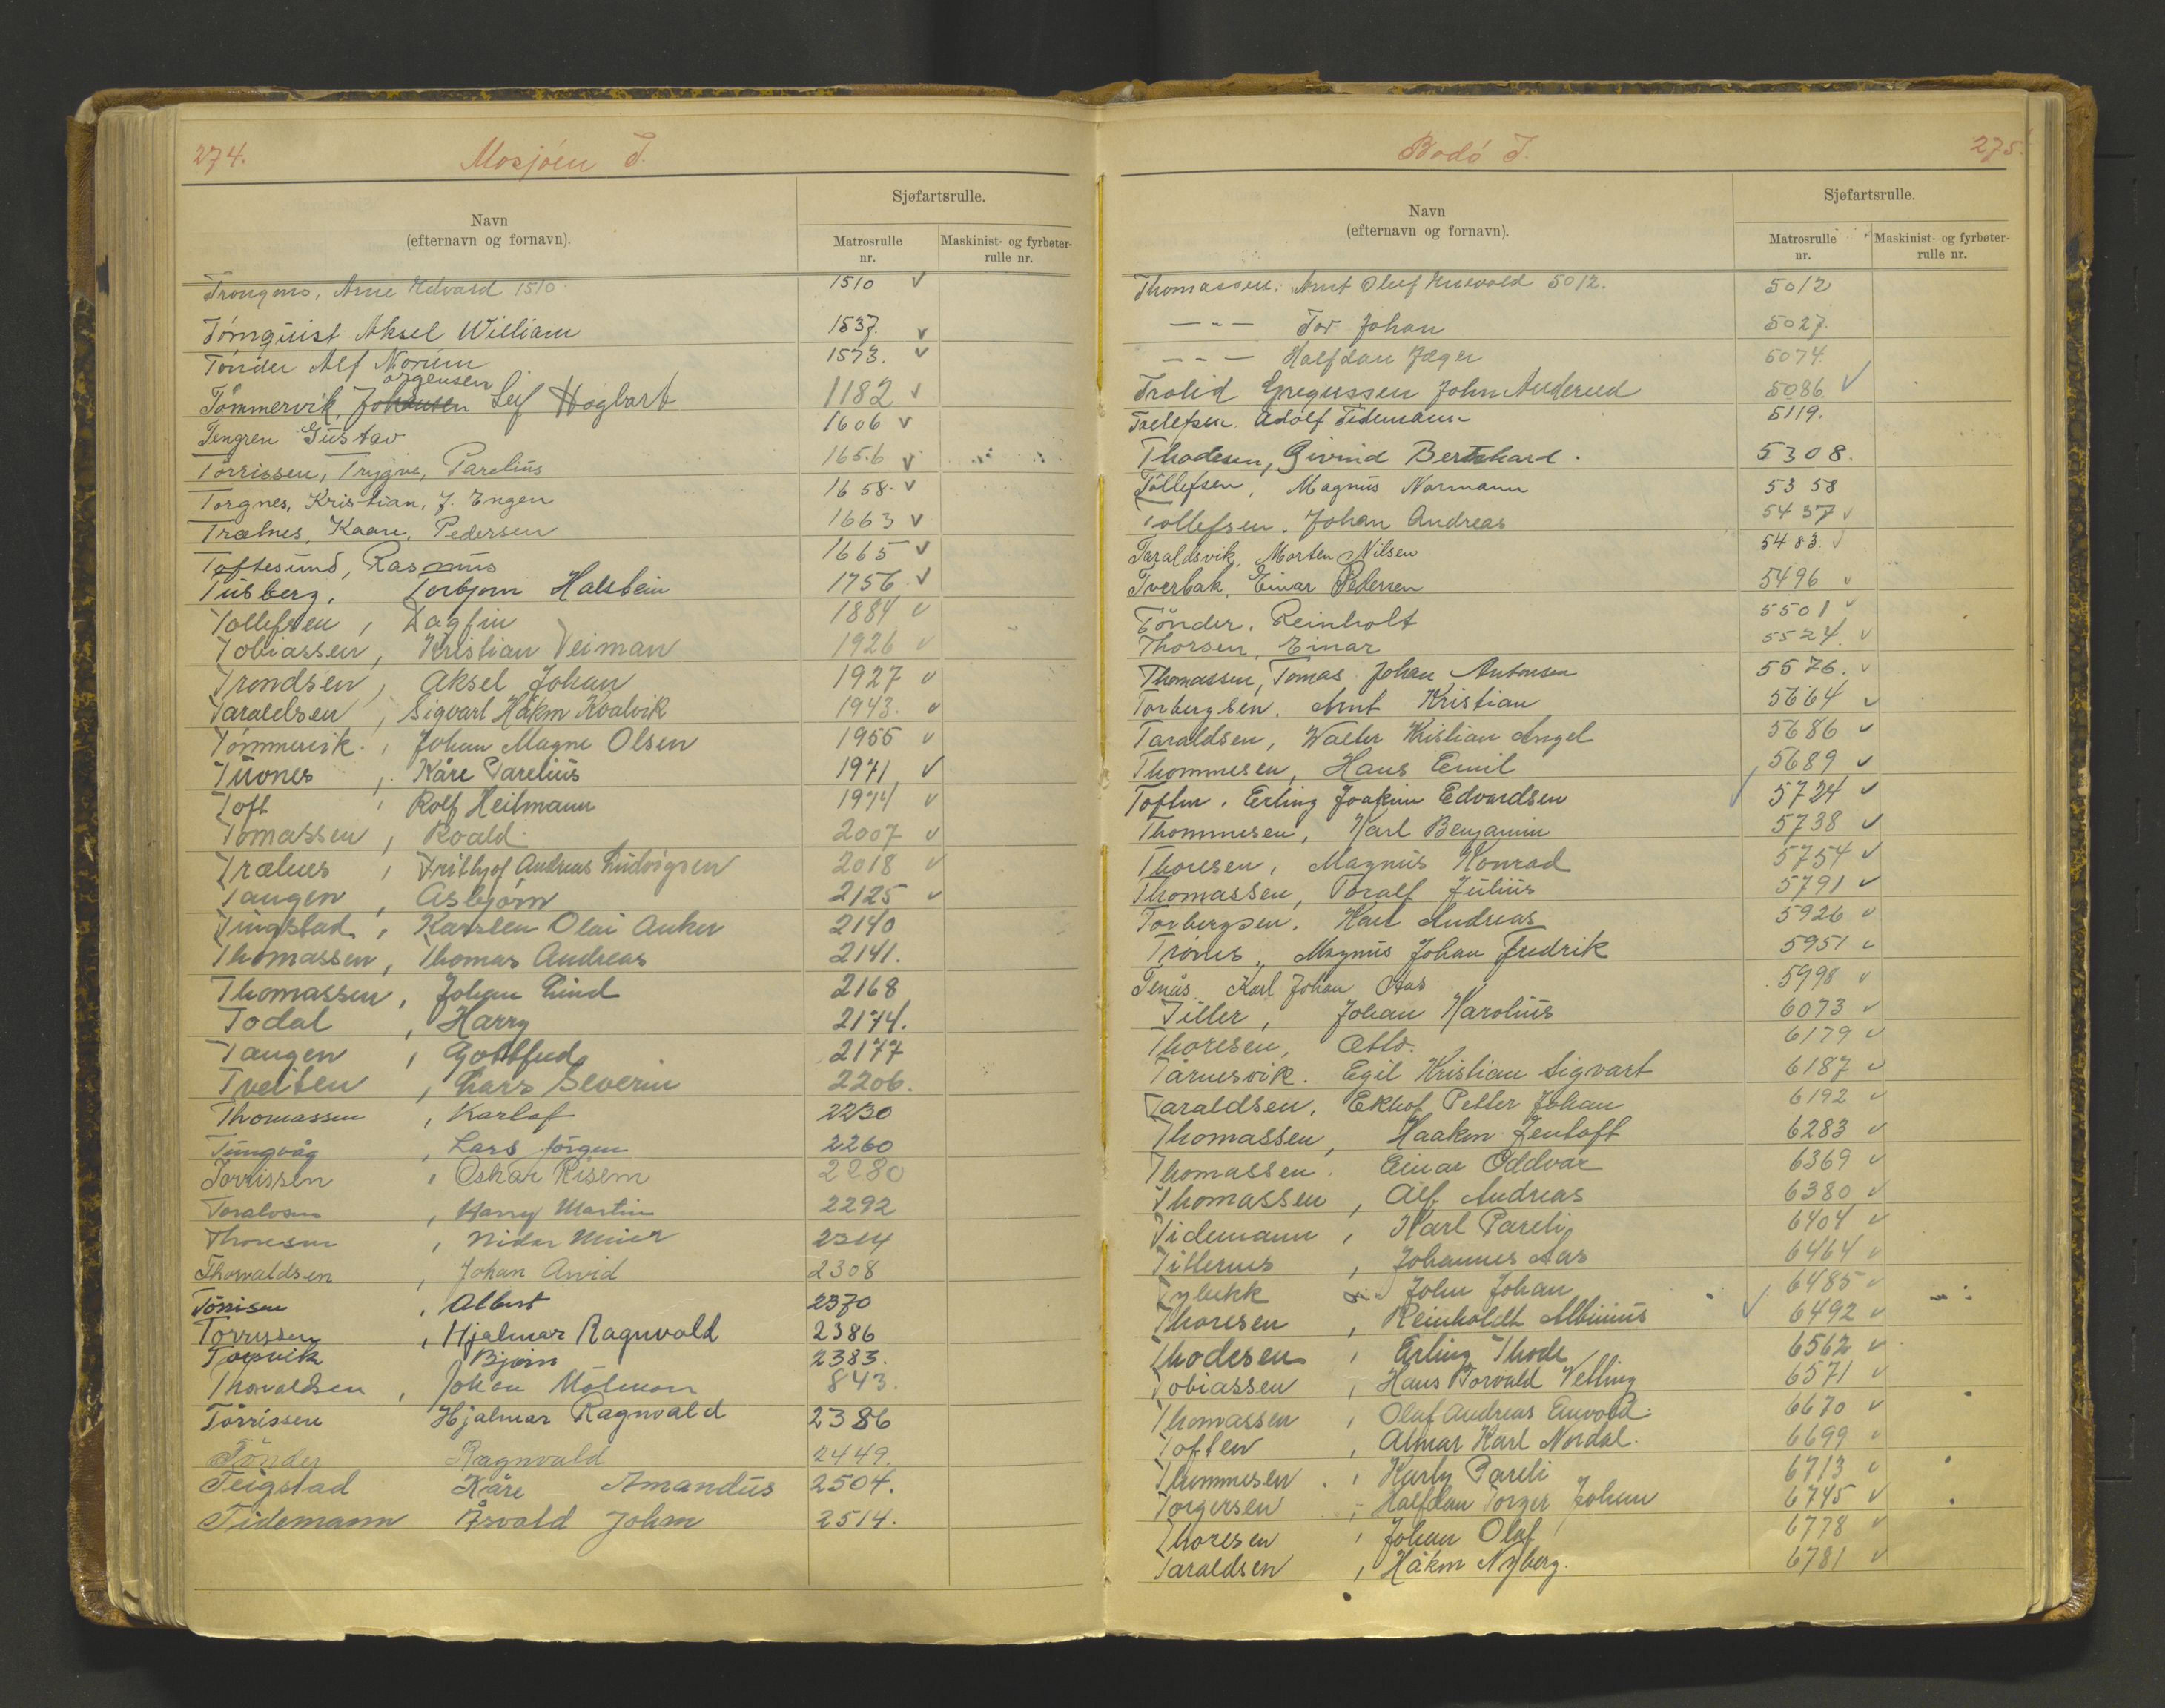 274.
Mosjøen T.
Navn
(efternavn og fornavn).
Sjøfartsrulle.
Matrosrulle
nr.
Maskinist- og fyrbøter-
rulle nr.
Arne Edvard 1510 1510 v
Törnquist Aksel William 1537. v
Tönder Alf Norum 1573. v
Jörgensen
Tömmervik, Johansen Leif Hagbart 1182 v
Tengren Gustav 1606 v
Törrissen, Trygve, Parelius 1656 v
Torgnes, Kristian, J. Engen 1658. v
Trælnes, Kaare, Pedersen 1663 v
Toftesund, Rasmus 1665 v
Tusberg, Torbjørn Halstein 1756 v
Tollefsen, Dagfin 1884 v
Tobiassen, Kristian Veiman 1926 v
Trondsen, Aksel Johan 1927 v
Taraldsen, Sigvart Håkon Kvalvik 1943. v
Tömmervik, Johan Magne Olsen 1955 v
Kåre Parelius 1971 v
Toft, Rolf Heitmann 1974 v
Tomassen, Roald 2007 v
Trælnes, Frithjof Andreas Ludvigsen 2018 v
Tangen, Asbjörn 2125 v
Tingstad, Karsten Olai Anker 2140
Thomassen, Thomas Andreas 2141.
Thomassen, Johan Lind 2168
Todal, Harry 2174.
Tangen, Gottfred 2177
Tveiten, Lars Severin 2206.
Thomassen, Karlof 2230
Tungvåg, Lars Jörgen 2260
Torrissen, Oskar Risem 2280
Toralvsen, Harry Martin 2292
Thoresen, Nidar 2314
Thorvaldsen, Johan Arvid 2308
Tönisen, Albert 2370
Torrissen, Hjalmar Ragnvald 2386
Torsvik Bjørn 2383.
Thorvaldsen, Johan Molmon 843.
Törrissen Hjalmar Ragnvald 2386
Tönder Ragnvald 2449.
Teigstad Kåre Amandus 2504.
Tidemann Åsvald Johan 2514.
Bodø T.
275.
Navn
(efternavn og fornavn).
Sjøfartsrulle.
Matrosrulle
nr.
Maskinist- og fyrbøter-
rulle nr.
Thomassen, Arnt Oluf Enevold 5012. 5012
— " — Tor Johan 5027.
— " — Halfdan Jæger 5074
Trolid Gregussen John Anderud 5086 v
Toellefsen. Adolf Tidemann 5119.
Thodesen, Eivind Bernhard. 5308.
Töllefsen, Magnus Normann 5358
Tollefsen. Johan Andreas 5437 v
Taraldsvik, Morten Nilsen 5483. v
Tverbak, Einar Pedersen 5496 v
Tönder. Reinholt 5501 v
Thorsen, Einar 5524. v
Thomassen, Tomas Johan Antonsen 5576. v
Torbergsen. Arnt Kristian 5664 v
Taraldsen, Walter Kristian Angel 5686 v
Thommesen, Hans Emil 5689 v
Toften. Erling Joakim Edvardsen v 5724 v
Thommesen, Karl Benjamin 5738 v
Thoresen, Magnus Konrad 5754 v
Thomassen, Toralf Julius 5791 v
Torbergsen. Karl Andreas 5926 v
Trönes, Magnus Johan Fredrik 5951 v
Tenås Karl Johan Aas 5998 v
Tiller, Johan Karolius 6073 v
Thoresen, Otto. 6179 v
Tårnesvik. Egil Kristian Sigvart 6187 v
Taraldsen, Ekhof Petter Johan 6192 v
Thomassen, Haakon Jentoft 6283 v
Thomassen. Einar Oddvar 6369 v
Thomassen, Alf Andreas 6380 v
Tidemann, Karl Pareli 6404 v
Tillernes, Johannes Aas 6464 v
Tybekk John Johan 6485 v
Thoresen, Reinholdt Albinius v 6492 v
Thodesen, Erling Thode 6562 v
Tobiassen, Hans Torvald Velling 6571 v
Thomassen, Olaf Andreas Enevold 6670 v
Toften, Almar Karl Nordal. 6699 v
Thommesen, Karly Pareli 6713 v
Torgersen, Halfdan Torger Johan 6745 v
Thoresen, Johan Olaf 6778 v
Taraldsen, Håkon Nyberg. 6781 v